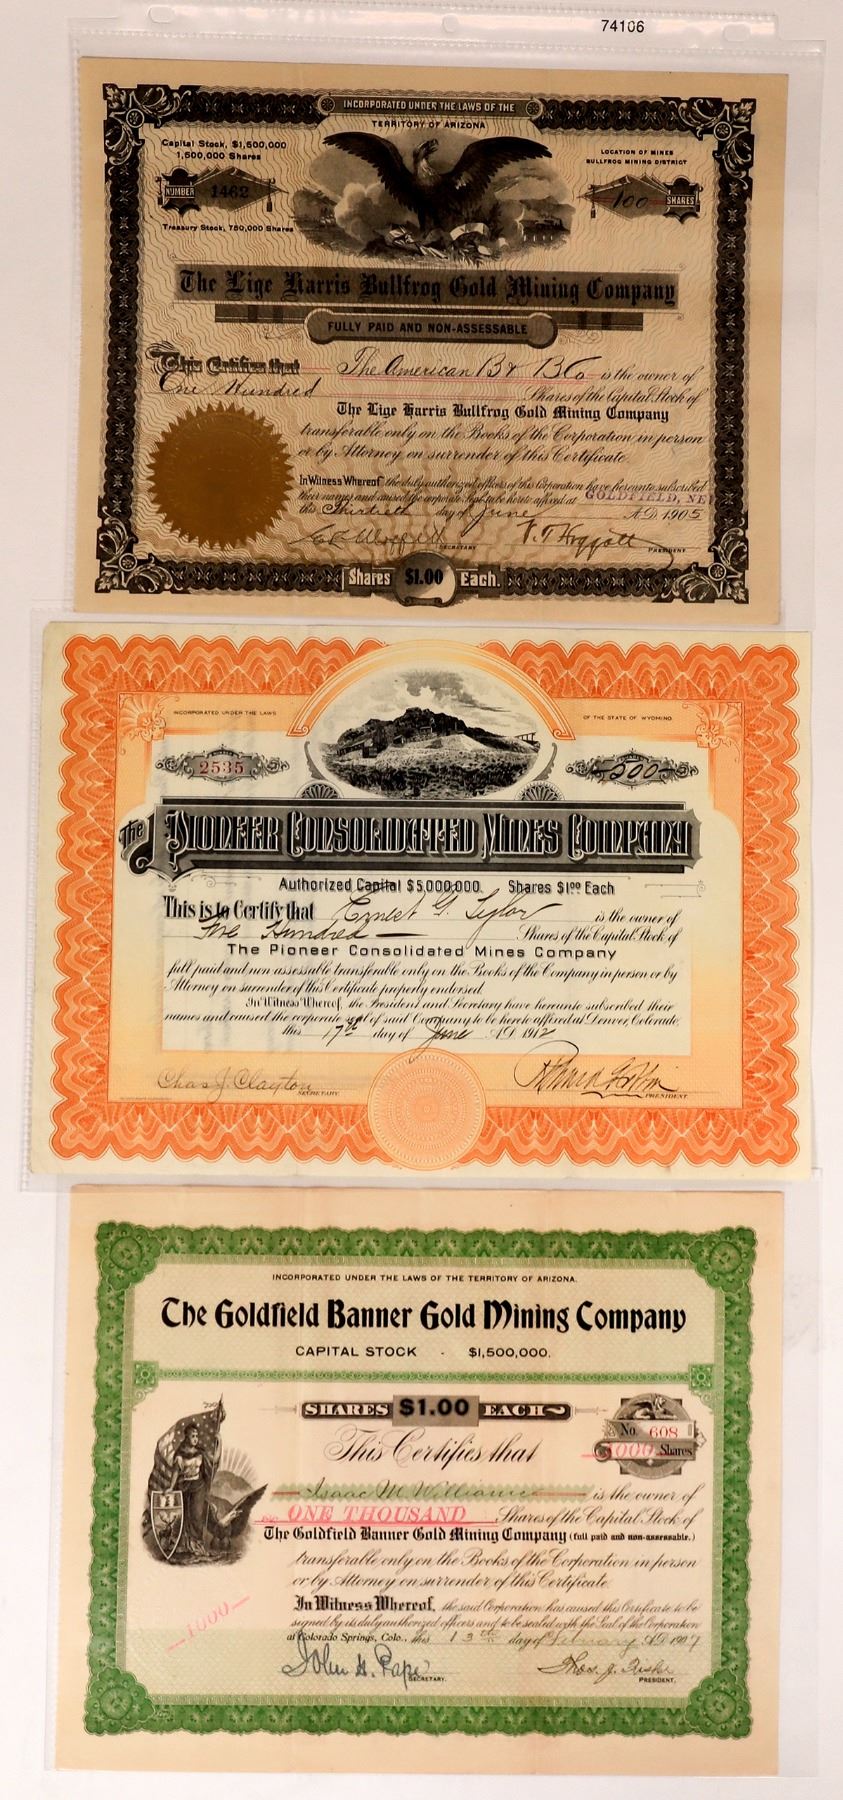 74106
INCORPORATED UNDER THE LAWS OF THE
TERRITORY OF ARIZONA
Capital Stock, $1,500,000
1,500,000 Shares
LOCATION OF MINES
BULLFROG MINING DISTRICT
NUMBER 1462
100 SHARES
Treasury Stock, 750,000 Shares
The Lige Harris Bullfrog Gold Mining Company
FULLY PAID AND NON-ASSESSABLE
This Certifies that The American B & B Co is the owner of
One Hundred Shares of the Capital Stock of
The Lige Harris Bullfrog Gold Mining Company
transferable only on the Books of the Corporation in person
or by Attorney on surrender of this Certificate.
In Witness Whereof the duly authorized officers of this Corporation have hereunto subscribed
their names and caused the corporate Seal to be hereto affixed at GOLDFIELD, NE
this Thirtieth day of June A.D. 1905
SECRETARY
PRESIDENT
Shares $1.00 Each.
INCORPORATED UNDER THE LAWS
OF THE STATE OF WYOMING
2535
500
The PIONEER CONSOLIDATED MINES COMPANY
Authorized Capital $5,000,000. Shares $1.00 Each
This is to Certify that Ernest G. Tylor is the owner of
Five Hundred Shares of the Capital Stock of
The Pioneer Consolidated Mines Company
full paid and non assessable transferable only on the Books of the Company in person or by
Attorney on surrender of this Certificate properly endorsed.
In Witness Whereof, the President and Secretary have hereunto subscribed their
names and caused the corporate seal of said Company to be hereto affixed at Denver, Colorado,
this 17th day of June A.D. 1912
Chas J. Clayton
SECRETARY
PRESIDENT
INCORPORATED UNDER THE LAWS OF THE TERRITORY OF ARIZONA.
The Goldfield Banner Gold Mining Company
CAPITAL STOCK - $1,500,000.
SHARES $1.00 EACH
No. 608
1000 Shares
This Certifies that
Isaac M. Williams is the owner of
ONE THOUSAND Shares of the Capital Stock of
The Goldfield Banner Gold Mining Company (full paid and non-assessable.)
transferable only on the Books of the Corporation in person
or by Attorney on surrender of this Certificate.
In Witness Whereof, the said Corporation has caused this Certificate to be
signed by its duly authorized officers and to be sealed with the Seal of the Corporation
at Colorado Springs, Colo., this 13th day of February A.D. 1907
1000
John G. Pape
SECRETARY.
Thos. J. Fisher
PRESIDENT.